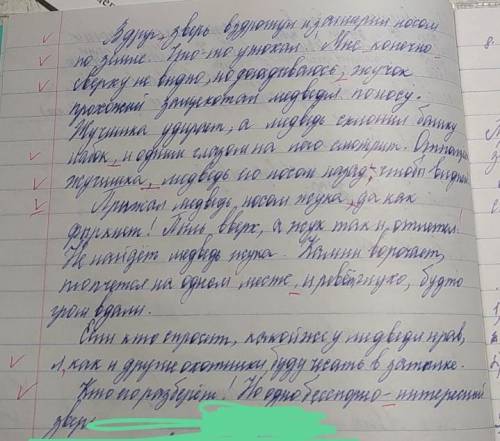 Вдруг, зверь вздрогнул и зашарил носом
по земле. Кто-то утекал! Мне конечно-
сверху не видно, но догадываюсь, жучок
прохожий защекотал медведя по носу.
Жучишка удирает, а медведь склонил башку
набок, и одним глазом на него смотрит. Отполз
жучишка, медведь его носом назад, чтобы видней.
Прижал медведь, носом жука, да как
фыркнет! Пыль вверх, а жук так и, отлетел.
Не найдёт медведь жука. Камни ворочает,
топчется на одном месте, и ревёт глухо, будто
гром вдали.
Если кто спросит, какой же у медведя нрав,
я, как и другие охотники, буду чесать в затылке.
Кто его разберёт! Но одно бесспорно - интересный
зверь